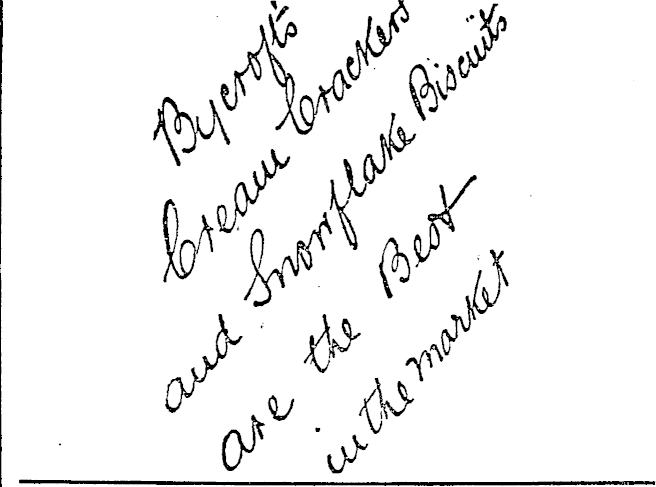 Bycroft's
Cream Crackers
and Snowflake Biscuits
are the Best
in the market